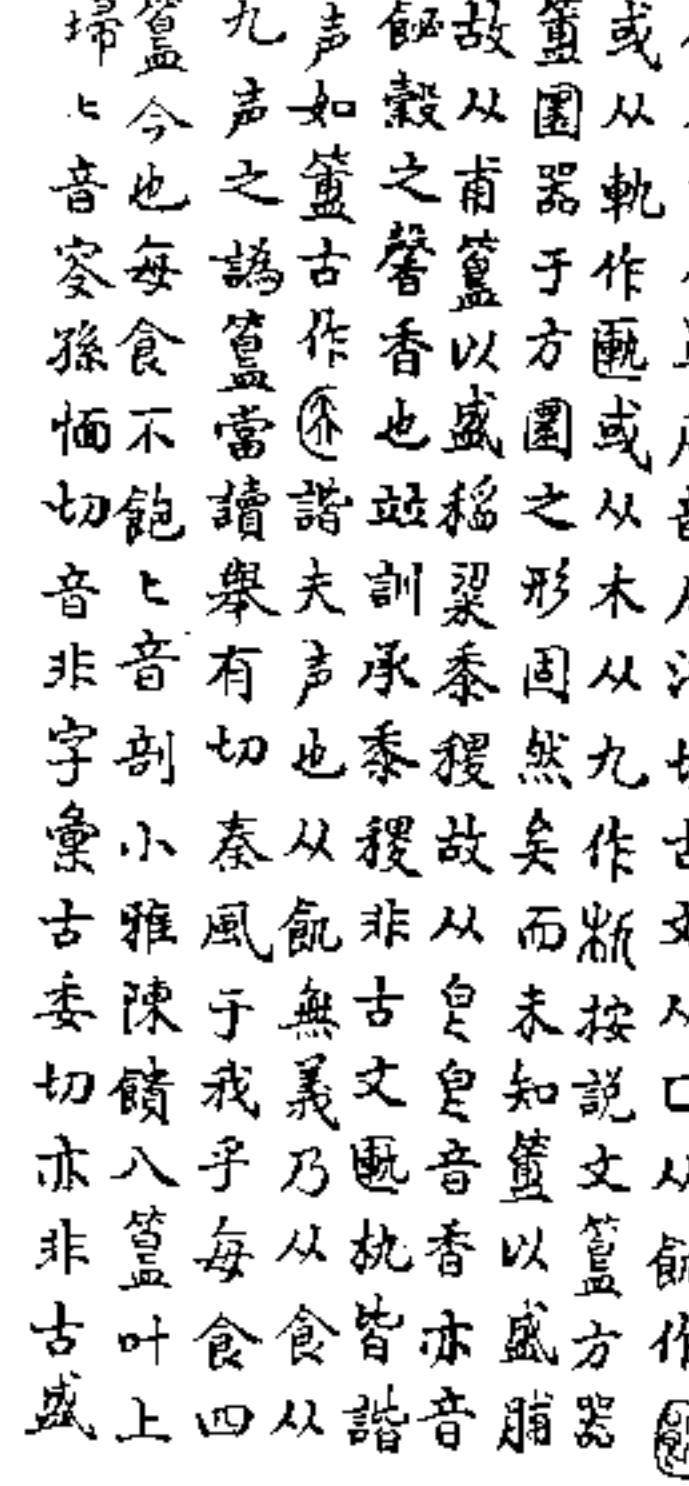 古文从匚从飢作
或从軌作匭或从木从九作朹按説文簋方器
簠圜器于方圜之形固然矣而未知簠以盛脯
故从甫簋以盛稻粱黍稷故从皀皀音香亦音
飶穀之馨香也竝訓承黍稷非古文匭朹皆諧
声如簠古作㊍諧夫声也从飢無義乃从食从
九声之譌簋當讀舉有切秦風于我乎每食四
簋今也每食不飽〻音剖小雅陳饋八簋叶上
埽〻音叜孫愐切音非字彙古委切亦非古盛